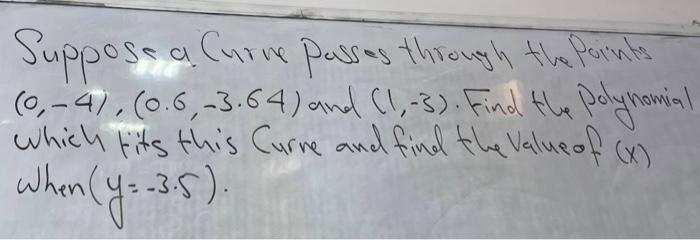 Suppose a Curve Passes through the Points
(0,-4), (0.6,-3.64) and (1,-3). Find the Polynomial
which fits this Curve and find the Value of (x)
when (y=-3.5).